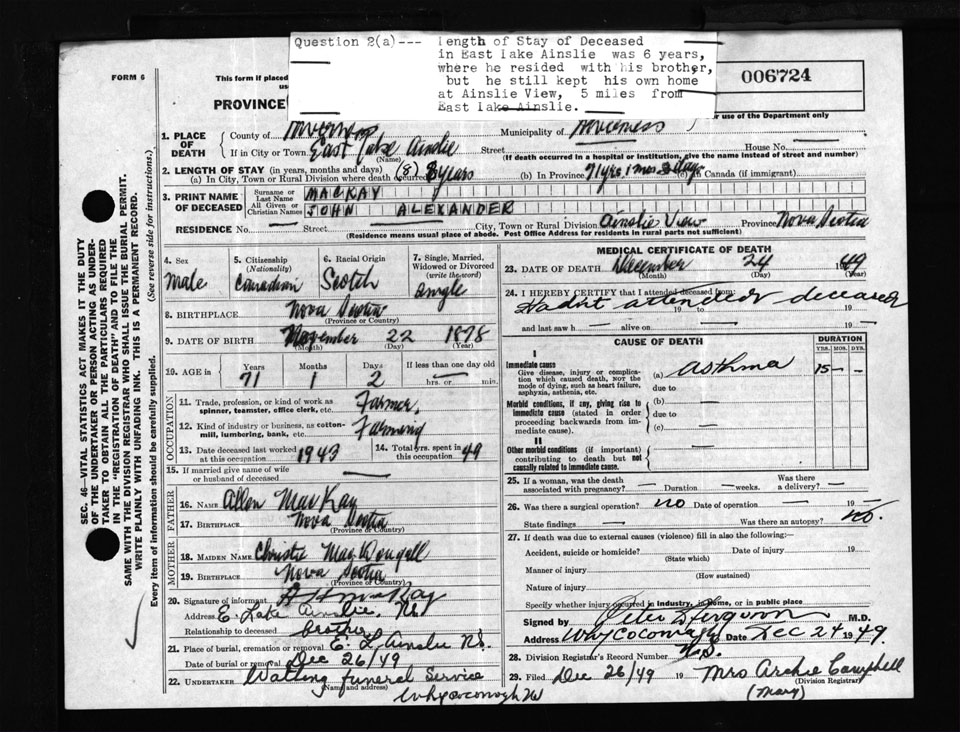 Question 2(a)--- length of Stay of Deceased
in East Lake Ainslie was 6 years,
where he resided with his brother,
but he still kept his own home
at Ainslie View, 5 miles from
East Lake Ainslie.
006724
FORM 6
This form if placed
PROVINCE
use of the Department only
1. PLACE OF DEATH
County of Inverness Municipality of Inverness
If in City or Town East Lake Ainslie Street House No.
(Name) (If death occurred in a hospital or institution, give the name instead of street and number)
2. LENGTH OF STAY (in years, months and days)
(a) In City, Town or Rural Division where death occurred (8) 8 years (b) In Province 71 yrs 1 mos 2 days (c) In Canada (if immigrant)
3. PRINT NAME OF DECEASED
Surname or Last Name MACKAY
All Given or Christian Names JOHN ALEXANDER
RESIDENCE No. Street City, Town or Rural Division Ainslie View Province Nova Scotia
(Residence means usual place of abode. Post Office Address for residents in rural parts not sufficient)
4. Sex Male
5. Citizenship (Nationality) Canadian
6. Racial Origin Scotch
7. Single, Married, Widowed or Divorced (write the word) Single
8. BIRTHPLACE Nova Scotia
(Province or Country)
9. DATE OF BIRTH November 22 1878
(Month) (Day) (Year)
10. AGE in Years Months Days If less than one day old
71 1 2 hrs. or min.
OCCUPATION
11. Trade, profession, or kind of work as spinner, teamster, office clerk, etc. Farmer,
12. Kind of industry or business, as cotton-mill, lumbering, bank, etc. Farming
13. Date deceased last worked at this occupation 1943
14. Total yrs. spent in this occupation 49
15. If married give name of wife or husband of deceased
FATHER
16. Name Allan MacKay
17. Birthplace Nova Scotia
(Province or Country)
MOTHER
18. Maiden Name Christie MacDougall
19. Birthplace Nova Scotia
(Province or Country)
20. Signature of informant
Address E. Lake Ainslie, N.S.
Relationship to deceased brother
21. Place of burial, cremation or removal E. L. Ainslie N.S.
Date of burial or removal Dec 26/49
22. UNDERTAKER Watling Funeral Service
(Name and address)
Whycocomagh
MEDICAL CERTIFICATE OF DEATH
23. DATE OF DEATH December 24 1949
(Month) (Day) (Year)
24. I HEREBY CERTIFY that I attended deceased from:
Hadn't attended deceased
19 to 19
and last saw h alive on 19
CAUSE OF DEATH
DURATION
YRS. MOS. DYS.
I
Immediate cause
Give disease, injury or complication which caused death, NOT the mode of dying, such as heart failure, asphyxia, asthenia, etc.
(a) Asthma 15 — —
due to
Morbid conditions, if any, giving rise to immediate cause (stated in order proceeding backwards from immediate cause).
(b)
due to
(c)
II
Other morbid conditions (if important) contributing to death but not causally related to immediate cause.
25. If a woman, was the death associated with pregnancy? Duration weeks. Was there a delivery?
26. Was there a surgical operation? no Date of operation 19
State findings Was there an autopsy? no.
27. If death was due to external causes (violence) fill in also the following:—
Accident, suicide or homicide? Date of injury 19
(State which)
Manner of injury
(How sustained)
Nature of injury
Specify whether injury occurred in industry, in home, or in public place
Signed by Ferguson M.D.
Address Whycocomagh Date Dec 24 1949.
N.S.
28. Division Registrar's Record Number
29. Filed Dec 26/49 19 Mrs Archie Campbell
(Division Registrar)
(Mary)
SEC. 46—VITAL STATISTICS ACT MAKES IT THE DUTY
OF THE UNDERTAKER OR PERSON ACTING AS UNDER-
TAKER TO OBTAIN ALL THE PARTICULARS REQUIRED
IN THE "REGISTRATION OF DEATH" AND TO FILE THE
SAME WITH THE DIVISION REGISTRAR WHO SHALL ISSUE THE BURIAL PERMIT.
WRITE PLAINLY WITH UNFADING INK. THIS IS A PERMANENT RECORD.
Every item of information should be carefully supplied. (See reverse side for instructions.)